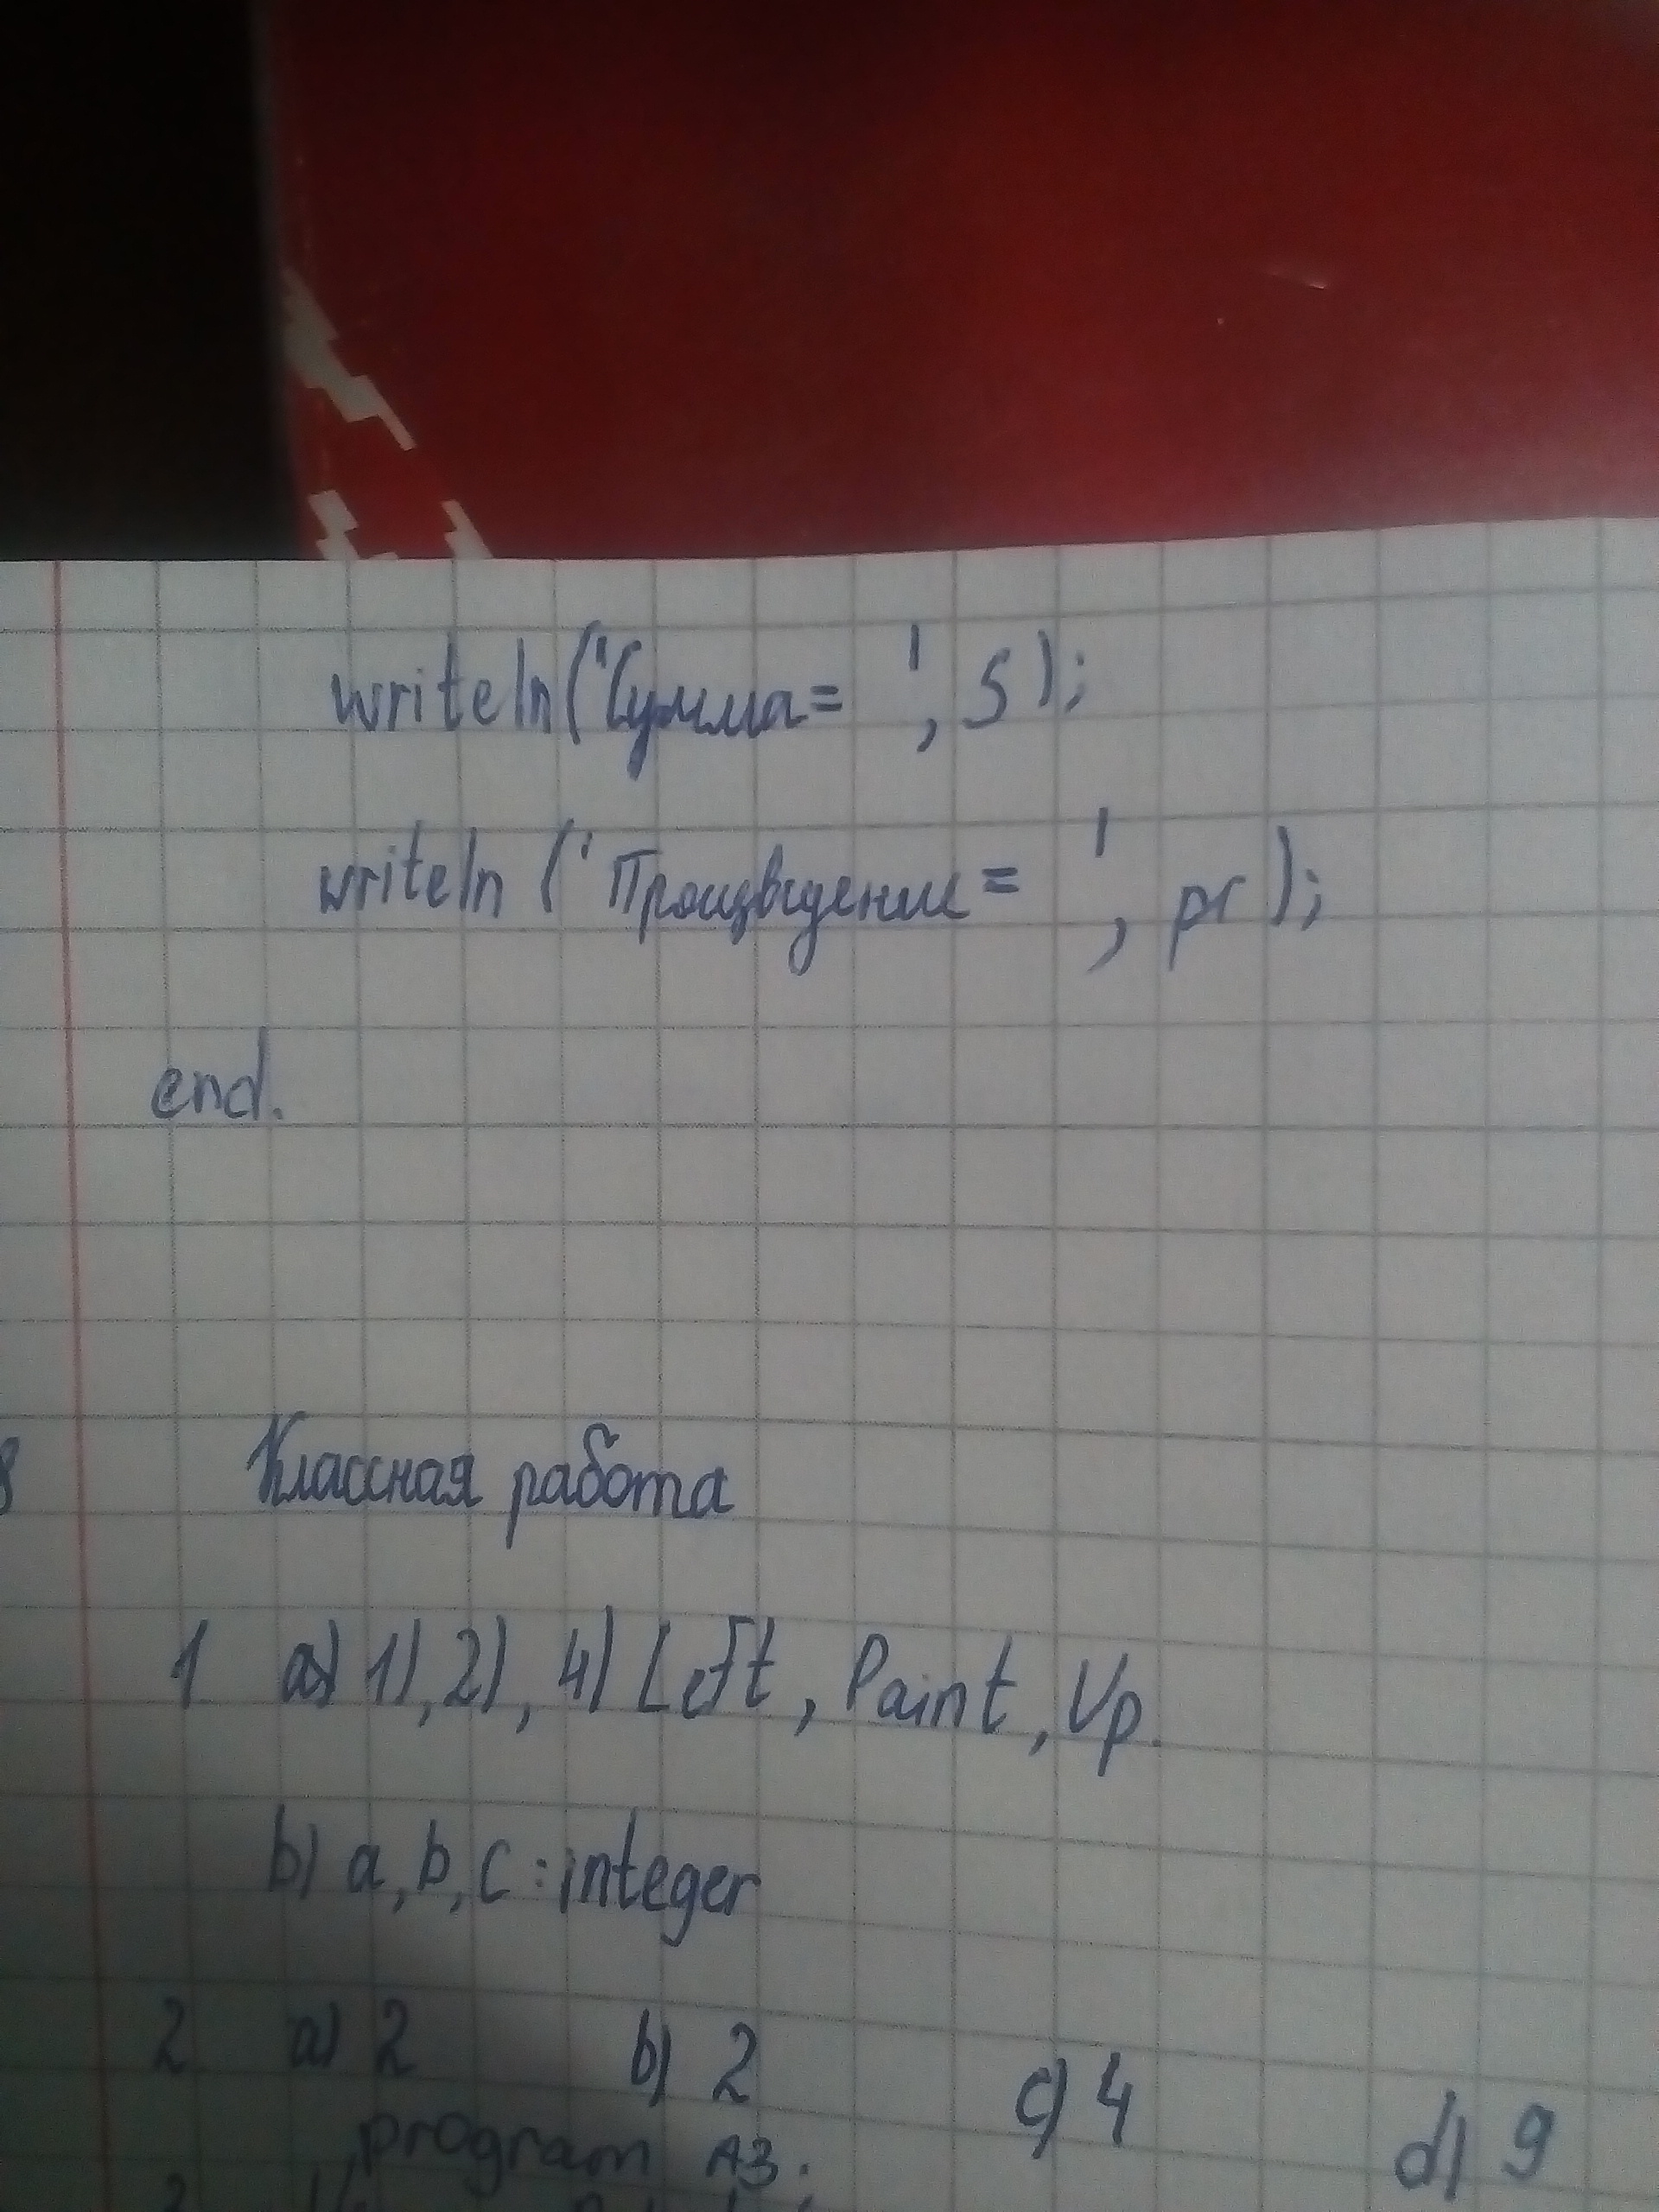 writeln('Сумма= ', S);
writeln ('Произведение= ', pr);
end.
Классная работа
1 a) 1), 2), 4) Left, Paint, Up.
b) a, b, c : integer
2 a) 2 b) 2 c) 4 d) 9
program A3;
3